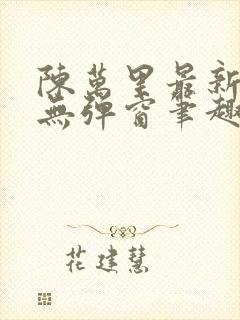 陳萬里最新
無彈窗筆趣
花建慧